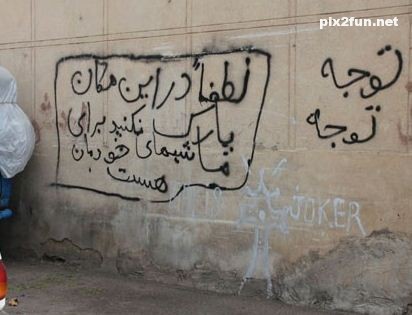 pix2fun.net
توجه
توجه
لطفاً در این مکان
پارک نکنید برای
ماشینهای خودمان
هست
JOKER